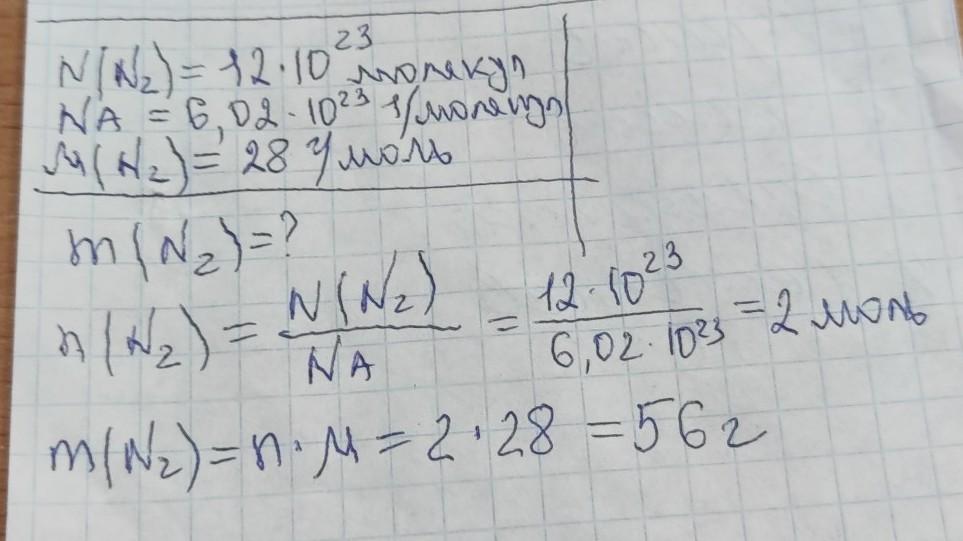 N(N₂) = 12·10²³ молекул
NA = 6,02·10²³ 1/молекул
M(N₂) = 28 г/моль
m(N₂) = ?
n(N₂) = N(N₂)/NA = 12·10²³/6,02·10²³ = 2 моль
m(N₂) = n·M = 2·28 = 56 г